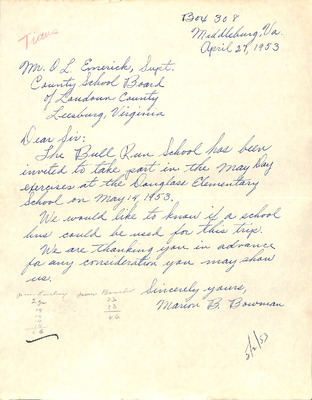 Trans
Box 308
Middleburg, Va.
April 27, 1953
Mr. O. L. Emerick, Supt.
County School Board
of Loudoun County
Leesburg, Virginia
Dear Sir:
The Bull Run School has been
invited to take part in the May Day
exercises at the Douglass Elementary
School on May 14, 1953.
We would like to know if a school
bus could be used for this trip.
We are thanking you in advance
for any consideration you may show
us.
Sincerely yours,
Marion B. Bowman
5/2/53